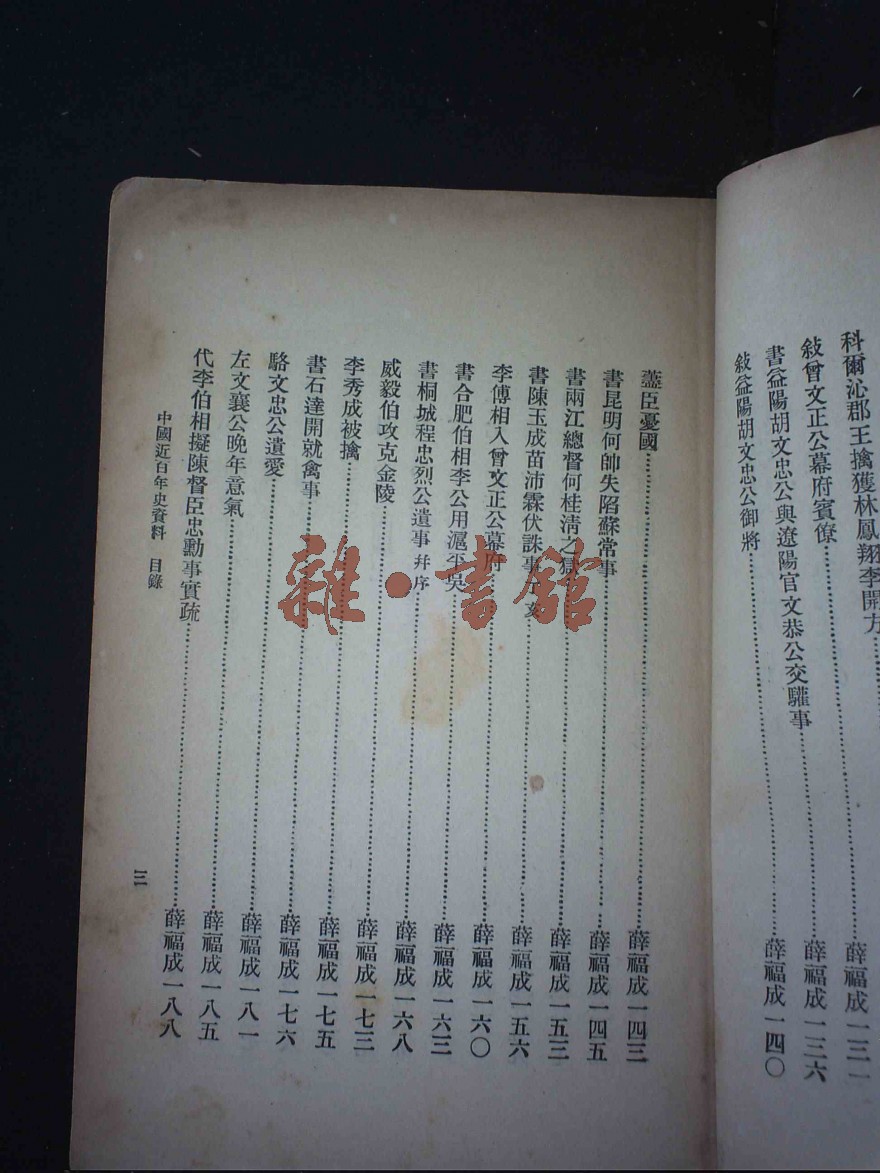 科爾沁郡王擒獲林鳳翔李開方
敍曾文正公幕府賓僚……薛福成一三一
書益陽胡文忠公與遼陽官文恭公交驩事……薛福成一三六
敍益陽胡文忠公御將……薛福成一四〇
藎臣憂國……薛福成一四三
書昆明何帥失陷蘇常事……薛福成一四五
書兩江總督何桂清之獄……薛福成一五三
書陳玉成苗沛霖伏誅事……薛福成一五六
李傅相入曾文正公幕府……薛福成一六〇
書合肥伯相李公用滬平吳……薛福成一六三
書桐城程忠烈公遺事 幷序……薛福成一六八
威毅伯攻克金陵……薛福成一七三
李秀成被擒……薛福成一七五
書石達開就禽事……薛福成一七六
駱文忠公遺愛……薛福成一八一
左文襄公晚年意氣……薛福成一八五
代李伯相擬陳督臣忠勳事實疏……薛福成一八八
中國近百年史資料 目錄
三
雜·書館